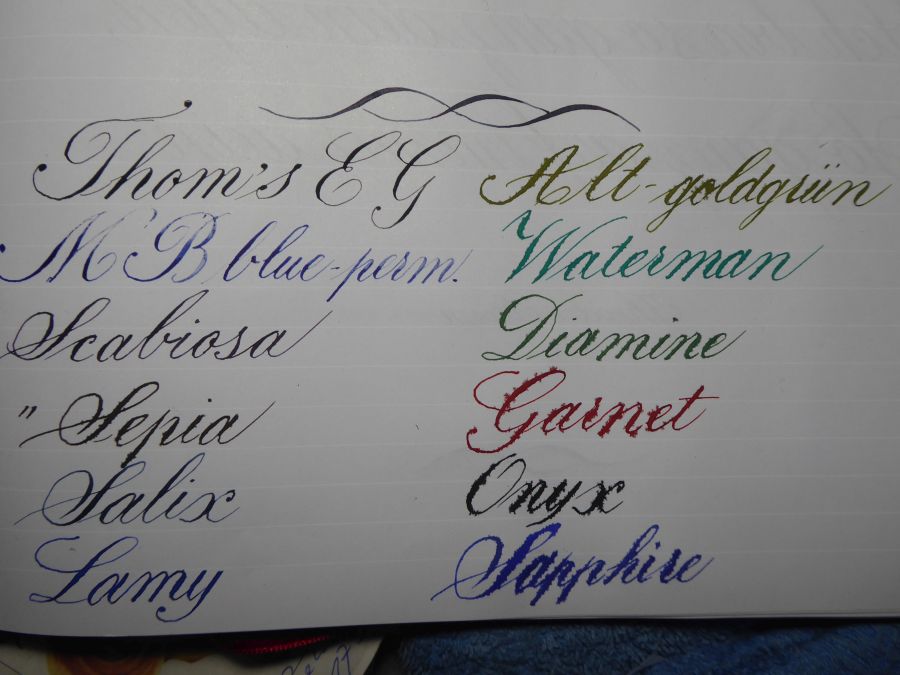 Thom's EG
MB blue-perm.
Scabiosa
" Sepia
Salix
Lamy
Alt-goldgrün
Waterman
Diamine
Garnet
Onyx
Sapphire